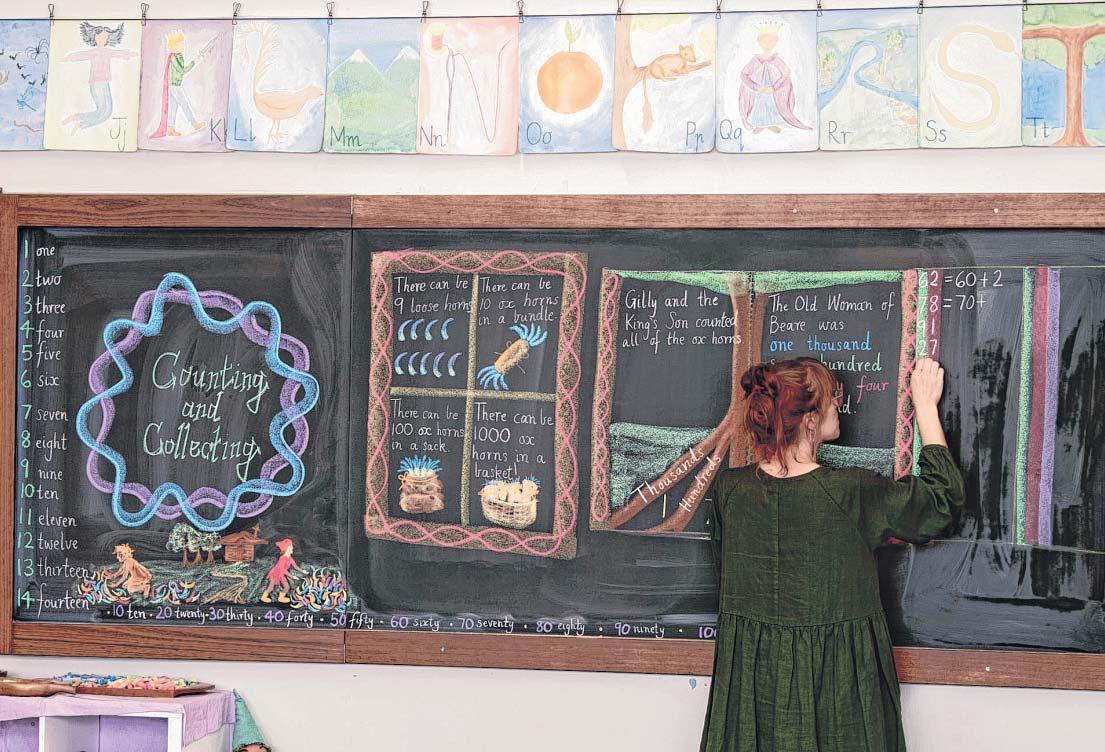 Jj
Kk
Ll
Mm
Nn
Oo
Pp
Qq
Rr
Ss
Tt
1 one
2 two
3 three
4 four
5 five
6 six
7 seven
8 eight
9 nine
10 ten
11 eleven
12 twelve
13 thirteen
14 fourteen
Counting
and
Collecting
10 ten · 20 twenty · 30 thirty · 40 forty · 50 fifty · 60 sixty · 70 seventy · 80 eighty · 90 ninety ·
There can be
9 loose horns
There can be
10 ox horns
in a bundle.
There can be
100 ox horns
in a sack.
There can be
1000 ox
horns in a
basket!
Gilly and the
King's Son counted
all of the ox horns
Thousands
Hundreds
The Old Woman of
Beare was
one thousand
hundred
four
62 = 60 + 2
78 = 70 +
91
27